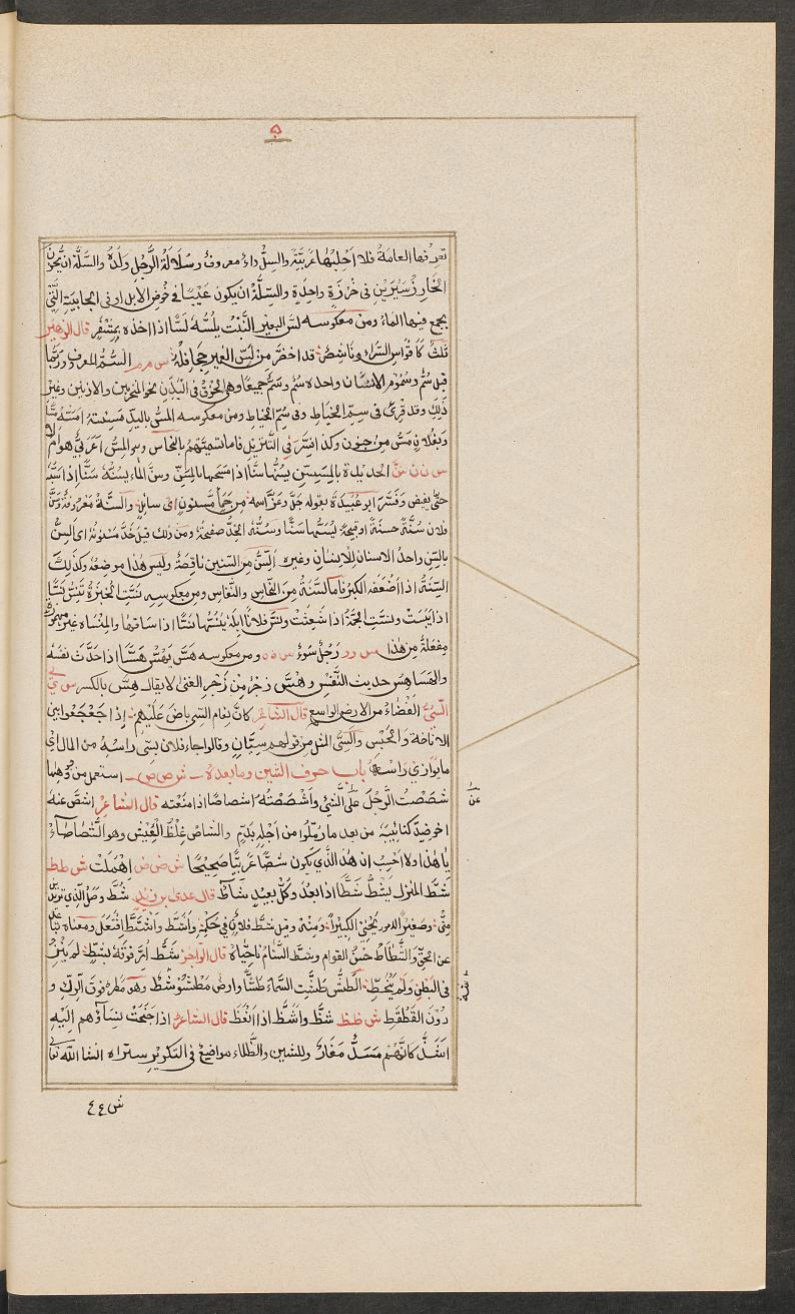 ٥
تعرفها العامة فلا احلبها عَربيّة والسِلُّ داءٌ معروفٌ وسُلَالَةُ الرَّجُلِ وَلَدُهُ والسَّلَّةُ ان يَخْرِزَ
الخارِزُ سَيْرَيْنِ في خَرْزَةٍ واحِدَةٍ والسِّلَّةُ ان يكون عَيْبًا في حَوْضِ الابل او في الجابِيَةِ الّتي
يجمع فيها الماءُ ومن معكوسه لَسَّ البعيرُ النَّبْتَ يَلُسُّهُ لَسًّا اذا اخذه بِمِشْفَرِ قال الزهير
ثَلثٌ كَاَقْواسِ السَّراءِ وناشِطٌ قد اخضَرَّ مِن لَسِّ الغَميرِ جَحافِلُهُ س م م السَّمُّ المعروف وربّما
قيل سُمّ وسُمُومُ الانسان واحده سُمٌّ وسَمٌّ جميعًا وهى الخُروقُ فى البَدَنِ نحو المنخرين والاذنين وغير
ذلك وقد قُرِئَ فى سمِّ الخياطِ وفى سُمِّ الخياطِ ومن معكوسه المسُّ باليدِ مَسِسْتُهُ اَمَسُّهُ مَسًّا
وبفلانٍ مَسٌّ من جنون وكذا فُسِّرَ فى التنزيل فاما تسميتهم بالنّحاس المسّ اَعَرَبيٌّ هو ام لا
س ن ن سنّ الحديدة بالمِسَنِّ يسُنُّها سَنًّا اذا مسحها بالمِسَنِّ وسنَّ الماءَ يسُنُّهُ سَنًّا اذا صَبَّهُ
حتّى يفيض وفَسَّرَ ابو عُبَيْدَةَ قوله جَلَّ وعَزَّ اسمه مِن حَمَإٍ مَسْنونٍ اى سايِلٍ والسُنَّةُ مَعْروفَةٌ وسَنَّ
فلان سُنَّةً حسنةً او قبيحةً يَسُنُّها سَنًّا وسُنَّةُ الخَدِّ صفيحته ومن ذلك قيل خَدٌّ مَسْنونٌ اى املسُ
بالسِّنِ واحدُ الاسنان للانسان وغيره السِّنُّ من السنين ناقِصَةٌ وليس هذا موضعه وكذلك
السِّنَةُ اذا اَضْعَفه الكِبَرُ فاما السِّنَةُ مِنَ النُّعاسِ ومن معكوسِهِ نَسَّتِ الخُبزَةُ تَنِسُّ نَسًّا
اذا يَبِسَتْ ونَسَّتِ الجُمَّةُ اذا شَعِثَتْ ونَسَّ فلانٌ اِبِلَهُ يَنُسُّها نَسًّا اذا ساقها والمِنْسَاةُ غير مهموزة
مِفْعَلَةٌ من هذا س و و رَجُلُ سَوْءٍ س ه ه ومن معكوسه هَسَّ يَهُسُّ هَسًّا اذا حَدَّثَ نفسَه
والهَسَاهِسُ حديث النَّفْسِ وهَسْ زَجْرٌ مِن زَجْرِ الغَنمِ لا يقال هِسْ بالكسر س ى ى
السِّيُّ الفَضاءُ من الارض الواسِع قال الشاعر كانَّ نعام السِّىِّ باضَ عَلَيْهِمُ اذا جَعْجَعُوا بين
الاناخةِ والحَبْسِ والسِّىُّ المثل من قولهم سِيّانِ وقالوا جاء فلان بسِىِّ راسِهِ من المال اى
ما يوازى راسَه باب حرف الشين وما بعده ش ص ص استعمل من وجوهها
شَصَصْتُ الرَّجُلَ عَلى الشَّىْءِ واَشْصَصْتُهُ اشصاصًا اذا مَنَعْتَه قال الشاعر اشَصَّ عنه
اخو ضِدٍّ كتائِبَهُ من بعد ما رُمِّلُوا من اَجْلِهِ بِدَمِ والشَّصاصُ غِلَظُ العَيْشِ وهو الشَّصاصاءُ
يا هذا ولا احسِبُ ان هذا الّذى يكون شَصًّا عَرَبيًّا صَحيحًا ش ض ض اُهْمِلَتْ ش ط ط
شَطَّ المنزل يشُطُّ شَطًّا اذا بعُدَ وكُلُّ بعيدٍ شاطٌّ قال عدى بن زيد شَطَّ وَصْلُ الّذى تريدين
مِنّى وصَغيرُ الامور يَجْنى الكبيرَا ومِنْهُ وقيل شَطَّ فلانٌ فى حُكْمِهِ واَشَطَّ واشْتَطَّ افْتَعَلَ ومعناه تباعد
عن الحقّ والشَّطاطُ حُسْنُ القوام وشَطُّ السَّنامِ ناحِيَتاهُ قال الراجز شَطٌّ اُمِرَّ فوقه بشَطِّ لم يَنْزُ
فى البَطْنِ ولَم يَنْحَطِّ الطَّشُّ طَشَّتِ السَّمآءُ طَشًّا وارضٌ مَطْشُوشَةٌ وهو مَطَرٌ فوق الرِّكِّ و
دُونَ القِطْقِطِ ش ظ ظ شَظَّ واَشَظَّ اذا اَنْعَظَ قال الشاعر اذا جَنَحَتْ نِسآؤُهم اِلَيْهِ
اشَظَّ كانَّهُ مَسَدٌ مُغارُ وللشين والظّاءِ مواضيع فى التكرير ستراه انشا الله تعا
ش ٤٤